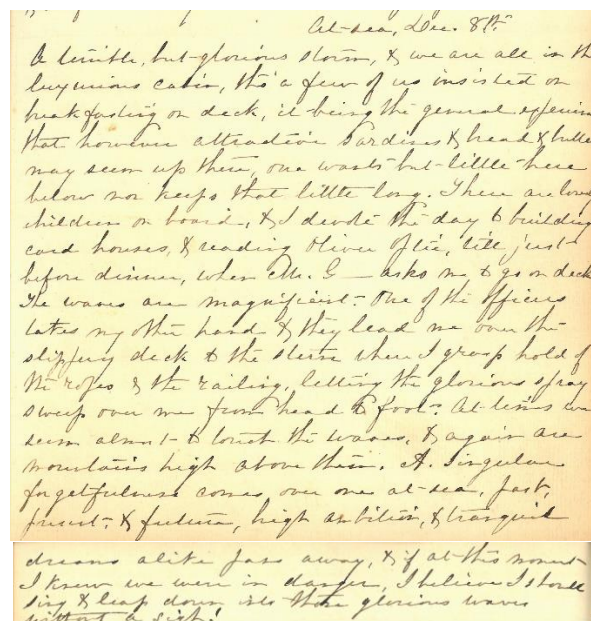 At sea, Dec. 8th
A terrible, but glorious storm, & we are all in th
luxurious cabin, tho' a few of us insisted on
breakfasting on deck, it being the general experien
that however attractive sardines & bread & butte
may seem up there, one wants but little here
below nor keeps that little long. There are lovely
children on board, & I devote the day to building
card houses, & reading Oliver Optic, till just
before dinner, when Mr. G — asks me to go on deck
The waves are magnificent. One of the officers
takes my other hand & they lead me over the
slippery deck to the stern where I grasp hold of
the ropes & the railing, letting the glorious spray
sweep over me from head to foot. At times we
seem almost to touch the waves, & again are
mountains high above them. A singular
forgetfulness comes over one at sea, past,
present, & future, high ambition, & tranquil
dreams alike pass away, & if at this moment
I knew we were in danger, I believe I should
sing & leap down into those glorious waves
without a sigh!